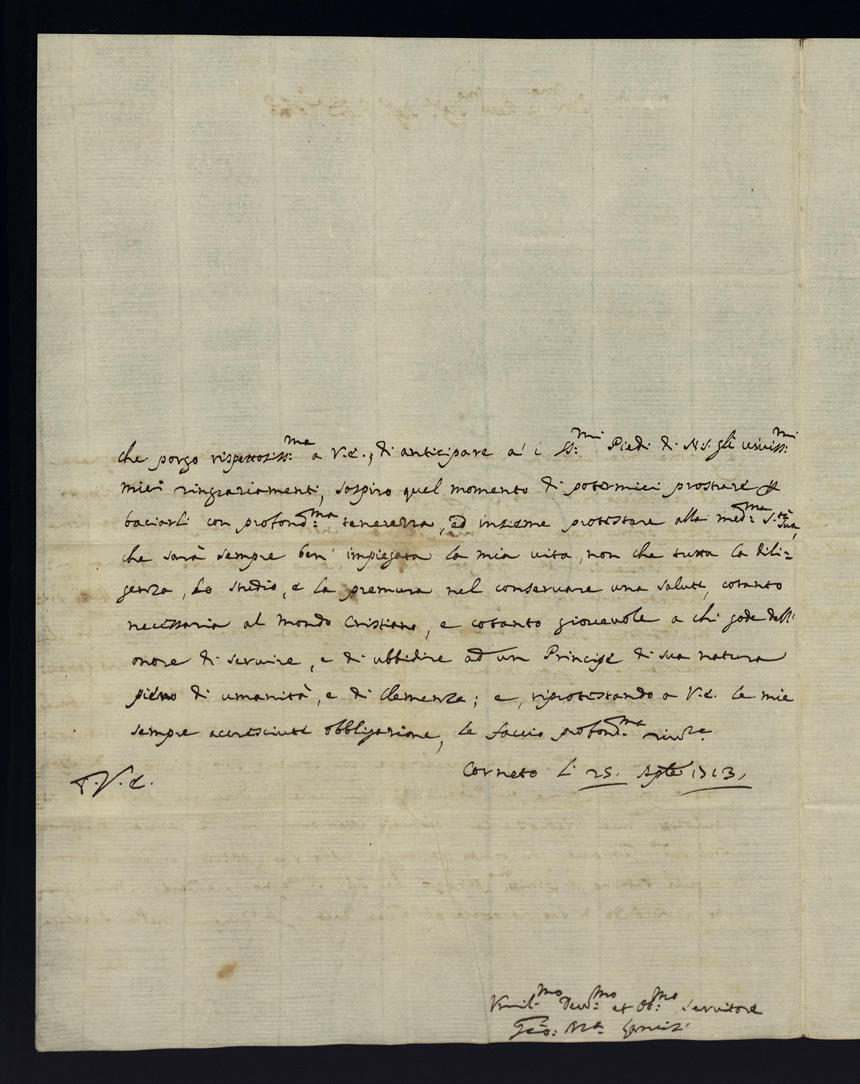 che porgo rispettosiss:ma a V.E., di anticipare a' i SS:mi Piedi di N.S. gli umiliss:mi
miei ringraziamenti, sospiro quel momento di potermici prostrare e
baciarli con profond:ma tenerezza, ed insieme protestare alla med:ma S.tà Sua,
che sarà sempre ben' impiegata la mia vita, non che tutta la dili=
genza, lo studio, e la premura nel conservare una salute, cotanto
necessaria al Mondo Cristiano, e cotanto giovevole a chi gode dell'
onore di servire, e di ubbidire ad un Principe di sua natura
pieno di umanità, e di Clemenza; e, riprotestando a V.E. le mie
sempre accresciute obbligazione, le faccio profond:ma riv.za
Corneto li 25. Aple
V.E.
Umil:mo Dev:mo et Ob:mo Servitore